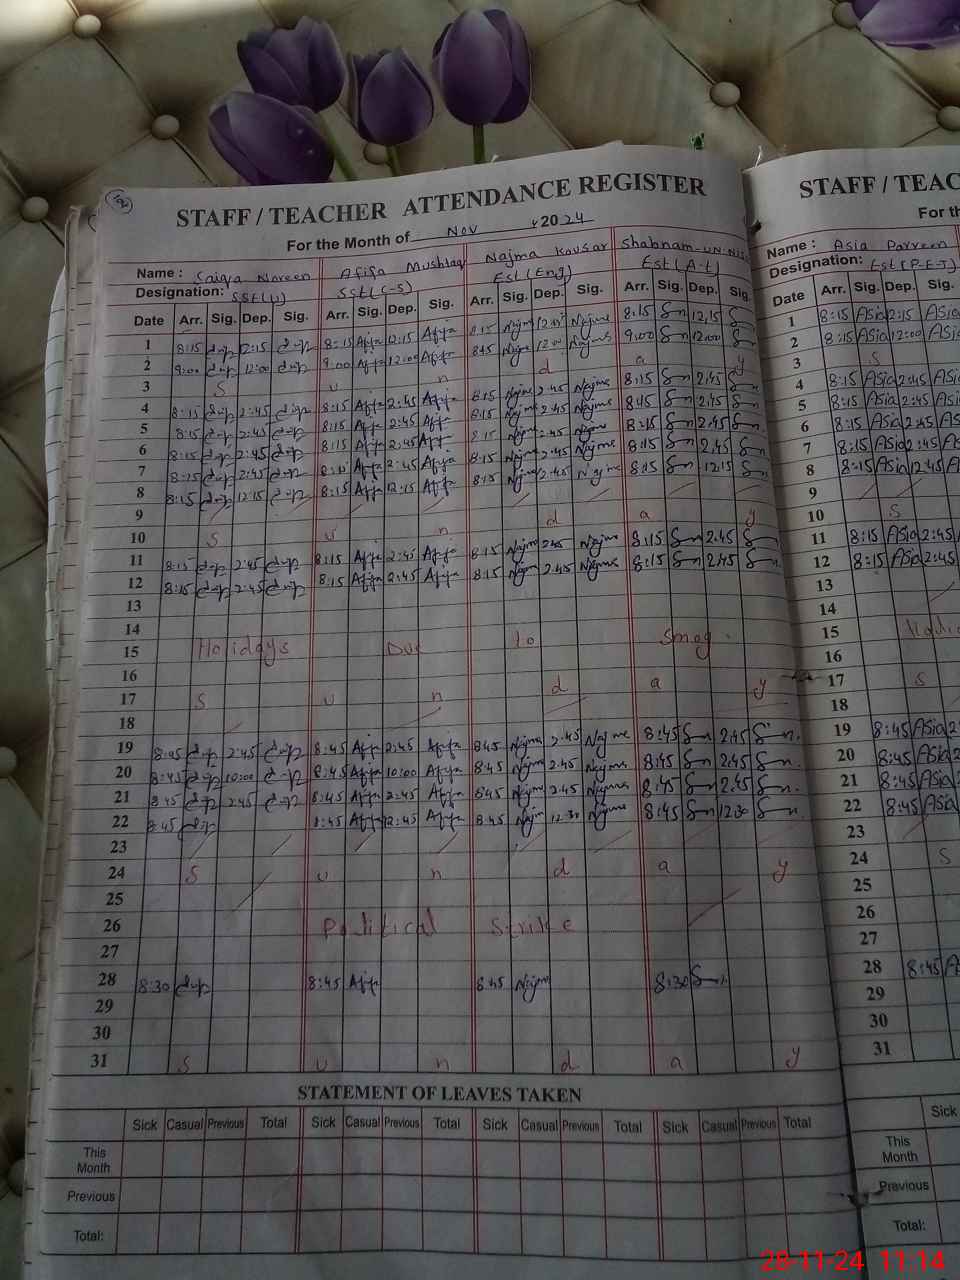 STAFF / TEACHER ATTENDANCE REGISTER
For the Month of Nov 2024
Name : Saiqa Noreen Afifa Mushtaq Najma Kousar Shabnam-un-Nisa
Designation: SSt(U) SSt(C-S) Est(Eng) Est(A-t)
Date Arr. Sig. Dep. Sig. Arr. Sig. Dep. Sig. Arr. Sig. Dep. Sig. Arr. Sig. Dep. Sig.
1 8:15 12:15 8:15 Afifa 12:15 Afifa 8:15 Najma Najma 8:15 Sn 12:15
2 9:00 12:00 9:00 Afifa 12:00 Afifa 8:45 Najma 12:00 Najma 9:00 Sn 12:00
3 S u n d a y
4 8:15 2:45 8:15 Afifa 2:45 Afifa 8:15 Najma 2:45 Najma 8:15 Sn 2:45 Sn
5 8:15 2:45 8:15 Afifa 2:45 Afifa 8:15 Najma 2:45 Najma 8:15 Sn 2:45 Sn
6 8:15 2:45 8:15 Afifa 2:45 Afifa 8:15 Najma 2:45 Najma 8:15 Sn 2:45 Sn
7 8:15 2:45 8:15 Afifa 2:45 Afifa 8:15 Najma 2:45 Najma 8:15 Sn 2:45 Sn
8 8:15 12:15 8:15 Afifa 12:15 Afifa 8:15 Najma 2:45 Najma 8:15 Sn 12:15 Sn
9
10 S u n d a y
11 8:15 2:45 8:15 Afifa 2:45 Afifa 8:15 Najma 2:45 Najma 8:15 Sn 2:45 Sn
12 8:15 2:45 8:15 Afifa 2:45 Afifa 8:15 Najma 2:45 Najma 8:15 Sn 2:45 Sn
13
14
15 Holidays Due to Smog.
16
17 S u n d a y
18
19 8:45 2:45 8:45 Afifa 2:45 Afifa 8:45 Najma 2:45 Najma 8:45 Sn 2:45 Sn.
20 8:45 10:00 8:45 Afifa 10:00 Afifa 8:45 Najma 2:45 Najma 8:45 Sn 2:45 Sn.
21 8:45 2:45 8:45 Afifa 2:45 Afifa 8:45 Najma 2:45 Najma 8:45 Sn 2:45 Sn.
22 8:45 8:45 Afifa 12:45 Afifa 8:45 Najma 12:30 Najma 8:45 Sn 12:30 Sn.
23
24 S u n d a y
25
26 Political Strike
27
28 8:30 8:45 Afifa 8:45 Najma 8:30 Sn.
29
30
31 S u n d a y
STATEMENT OF LEAVES TAKEN
Sick Casual Previous Total Sick Casual Previous Total Sick Casual Previous Total Sick Casual Previous Total
This Month
Previous
Total:
STAFF / TEAC
For th
Name : Asia Parveen
Designation: Est(P-E-T)
Date Arr. Sig. Dep. Sig.
1 8:15 Asia 2:15 Asia
2 8:15 Asia 12:00 Asia
3 S
4 8:15 Asia 2:45 Asia
5 8:15 Asia 2:45 Asia
6 8:15 Asia 2:45 Asia
7 8:15 Asia 2:45 Asia
8 8:15 Asia 12:45 Asia
9
10 S
11 8:15 Asia 2:45
12 8:15 Asia 2:45
13
14
15
16
17 S
18
19 8:45 Asia
20 8:45 Asia
21 8:45 Asia
22 8:45 Asia
23
24 S
25
26
27
28 8:45
29
30
31
Sick
This Month
Previous
Total:
28-11-24 11:14